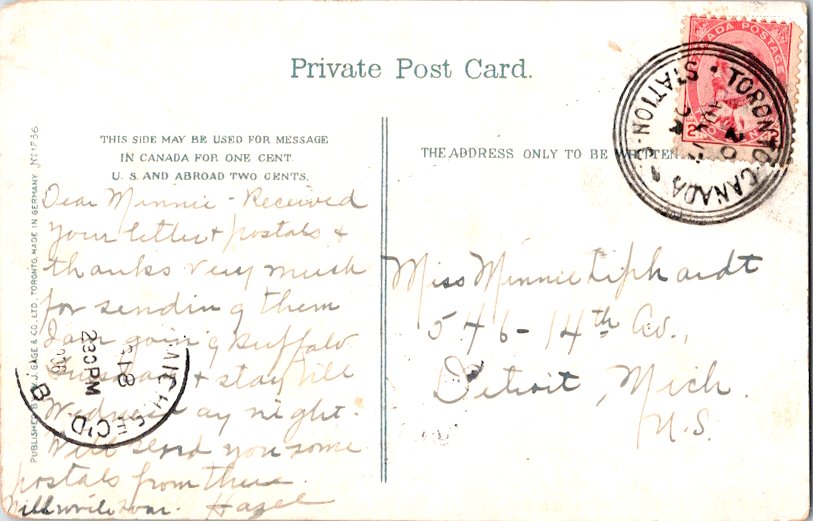 Private Post Card.
THIS SIDE MAY BE USED FOR MESSAGE
IN CANADA FOR ONE CENT.
U. S. AND ABROAD TWO CENTS.
THE ADDRESS ONLY TO BE WRITTEN
Dear Minnie - Received
your letter & postals &
thanks very much
for sending them
I am going Buffalo
& stay till
Wednesday night.
Will send you some
postals from there.
Will write soon. Hazel
Miss Minnie Liphardt
546-14th Av.,
Detroit, Mich.
U.S.
CANADA POSTAGE
TORONTO·CANADA
STATION
MICH. REC'D
230PM
PUBLISHED BY W. J. GAGE & CO., LTD., TORONTO, MADE IN GERMANY. No 1736